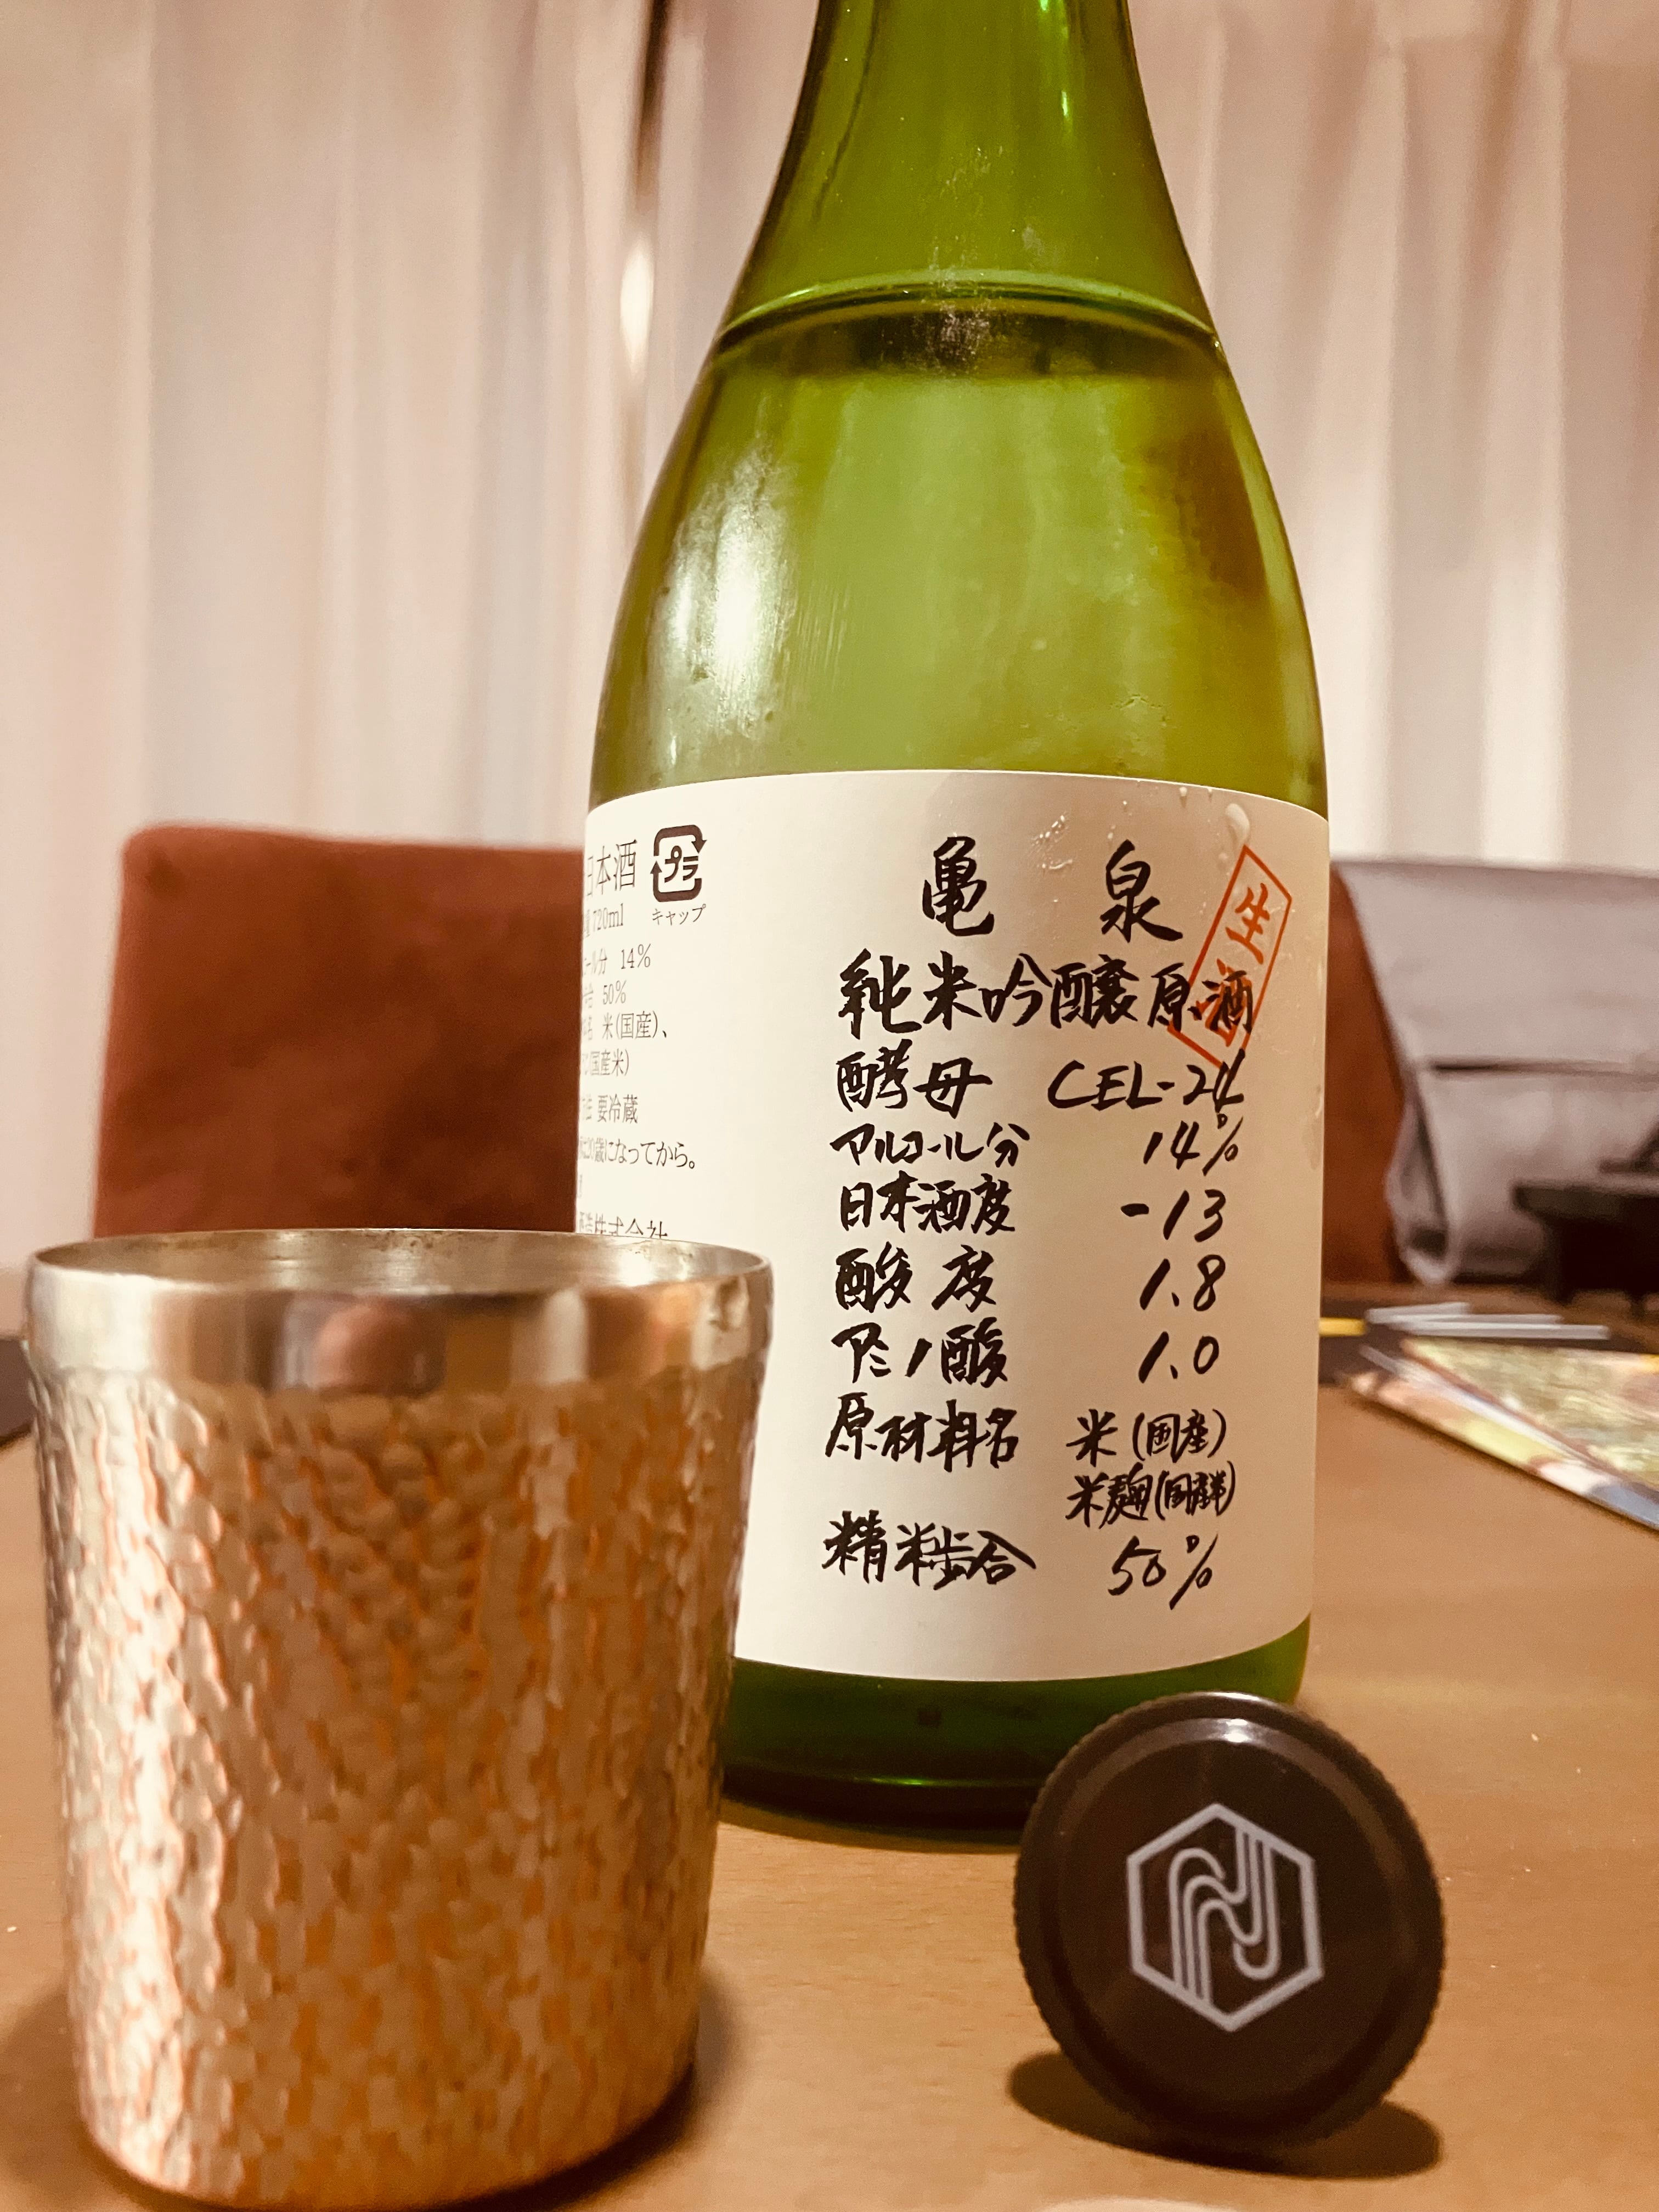 日本酒
プラ
720ml
キャップ
14%
50%
米(国産)、
(国産米)
要冷蔵
20歳になってから。
株式会社
亀 泉
生酒
純米吟醸原酒
酵母 CEL-24
アルコール分 14%
日本酒度 -13
酸度 1.8
アミノ酸 1.0
原材料名 米(国産)
米麹(国産米)
精米歩合 50%